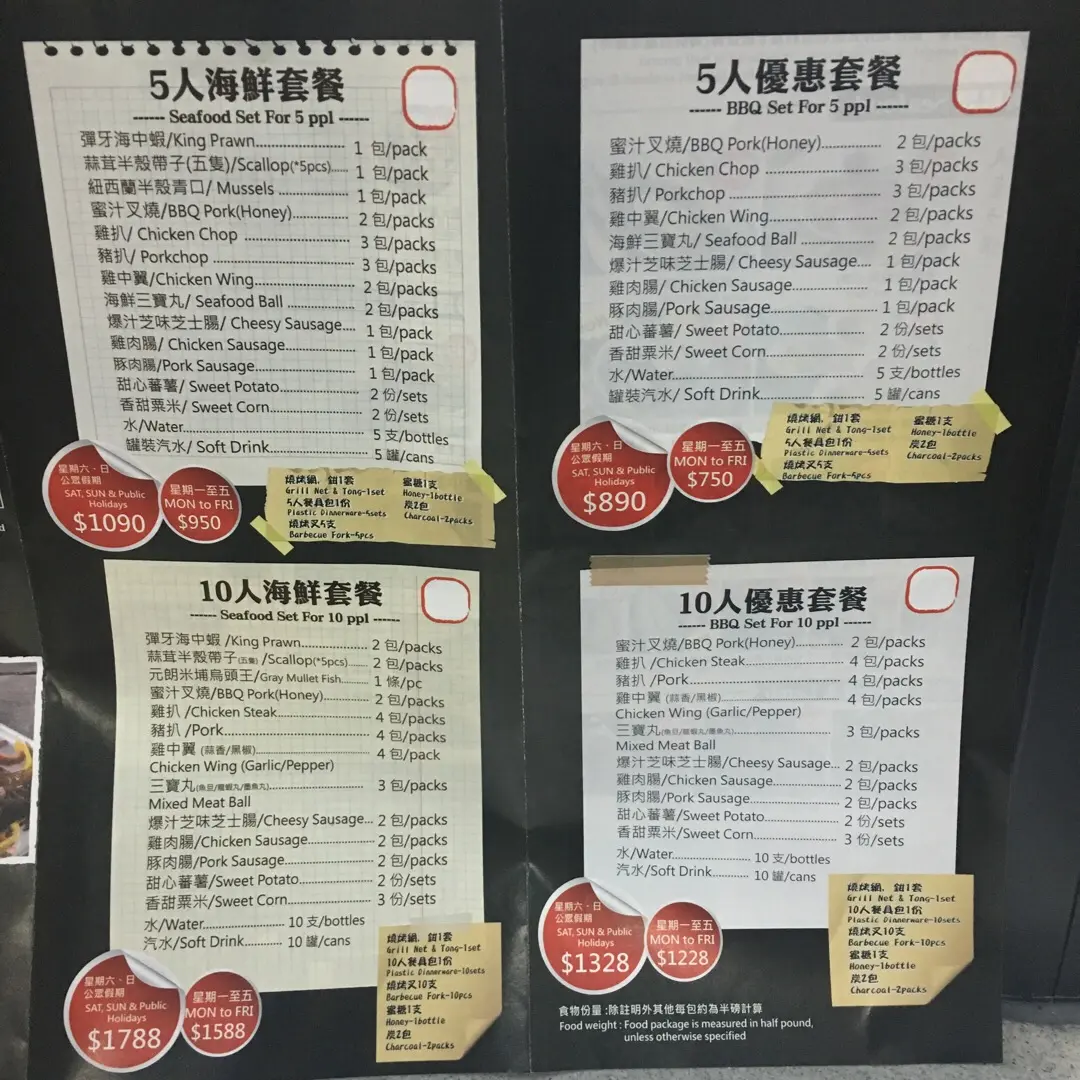 5人海鮮套餐
------ Seafood Set For 5 ppl ------
彈牙海中蝦/King Prawn................ 1 包/pack
蒜茸半殼帶子(五隻)/Scallop(*5pcs)..... 1 包/pack
紐西蘭半殼青口/ Mussels ............... 1 包/pack
蜜汁叉燒/BBQ Pork(Honey)............ 2 包/packs
雞扒/ Chicken Chop ..................... 3 包/packs
豬扒/ Porkchop ........................... 3 包/packs
雞中翼/Chicken Wing................... 2 包/packs
海鮮三寶丸/ Seafood Ball .............. 2 包/packs
爆汁芝味芝士腸/ Cheesy Sausage.... 1 包/pack
雞肉腸/ Chicken Sausage............... 1 包/pack
豚肉腸/Pork Sausage..................... 1 包/pack
甜心蕃薯/ Sweet Potato................. 2 份/sets
香甜粟米/ Sweet Corn.................... 2 份/sets
水/Water....................................... 5 支/bottles
罐裝汽水/ Soft Drink...................... 5 罐/cans
星期六、日
公眾假期
SAT, SUN & Public
Holidays
$1090
星期一至五
MON to FRI
$950
燒烤網, 鉗1套
Grill Net & Tong-1set
5人餐具包1份
Plastic Dinnerware-5sets
燒烤叉5支
Barbecue Fork-5pcs
蜜糖1支
Honey-1bottle
炭2包
Charcoal-2packs
5人優惠套餐
------ BBQ Set For 5 ppl ------
蜜汁叉燒/BBQ Pork(Honey)............... 2 包/packs
雞扒/ Chicken Chop ........................ 3 包/packs
豬扒/ Porkchop .............................. 3 包/packs
雞中翼/Chicken Wing...................... 2 包/packs
海鮮三寶丸/ Seafood Ball ................ 2 包/packs
爆汁芝味芝士腸/ Cheesy Sausage.... 1 包/pack
雞肉腸/ Chicken Sausage................. 1 包/pack
豚肉腸/Pork Sausage....................... 1 包/pack
甜心蕃薯/ Sweet Potato................... 2 份/sets
香甜粟米/ Sweet Corn...................... 2 份/sets
水/Water......................................... 5 支/bottles
罐裝汽水/ Soft Drink........................ 5 罐/cans
星期六、日
公眾假期
SAT, SUN & Public
Holidays
$890
星期一至五
MON to FRI
$750
燒烤網, 鉗1套
Grill Net & Tong-1set
5人餐具包1份
Plastic Dinnerware-5sets
燒烤叉5支
Barbecue Fork-5pcs
蜜糖1支
Honey-1bottle
炭2包
Charcoal-2packs
10人海鮮套餐
------ Seafood Set For 10 ppl ------
彈牙海中蝦 /King Prawn................. 2 包/packs
蒜茸半殼帶子(五隻) /Scallop(*5pcs)...... 2 包/packs
元朗米埔烏頭王/Gray Mullet Fish....... 1 條/pc
蜜汁叉燒/BBQ Pork(Honey)............ 2 包/packs
雞扒 /Chicken Steak....................... 4 包/packs
豬扒 /Pork..................................... 4 包/packs
雞中翼 (蒜香/黑椒)............................ 4 包/pack
Chicken Wing (Garlic/Pepper)
三寶丸(魚旦/龍蝦丸/墨魚丸)...................... 3 包/packs
Mixed Meat Ball
爆汁芝味芝士腸/Cheesy Sausage... 2 包/packs
雞肉腸/Chicken Sausage................. 2 包/packs
豚肉腸/Pork Sausage...................... 2 包/packs
甜心蕃薯/Sweet Potato................... 2 份/sets
香甜粟米/Sweet Corn...................... 3 份/sets
水/Water..................... 10 支/bottles
汽水/Soft Drink........... 10 罐/cans
星期六、日
公眾假期
SAT, SUN & Public
Holidays
$1788
星期一至五
MON to FRI
$1588
燒烤網, 鉗1套
Grill Net & Tong-1set
10人餐具包1份
Plastic Dinnerware-10sets
燒烤叉10支
Barbecue Fork-10pcs
蜜糖1支
Honey-1bottle
炭2包
Charcoal-2packs
10人優惠套餐
------ BBQ Set For 10 ppl ------
蜜汁叉燒/BBQ Pork(Honey)............ 2 包/packs
雞扒 /Chicken Steak....................... 4 包/packs
豬扒 /Pork..................................... 4 包/packs
雞中翼 (蒜香/黑椒)............................ 4 包/packs
Chicken Wing (Garlic/Pepper)
三寶丸(魚旦/龍蝦丸/墨魚丸)...................... 3 包/packs
Mixed Meat Ball
爆汁芝味芝士腸/Cheesy Sausage... 2 包/packs
雞肉腸/Chicken Sausage................. 2 包/packs
豚肉腸/Pork Sausage...................... 2 包/packs
甜心蕃薯/Sweet Potato................... 2 份/sets
香甜粟米/Sweet Corn...................... 3 份/sets
水/Water..................... 10 支/bottles
汽水/Soft Drink........... 10 罐/cans
星期六、日
公眾假期
SAT, SUN & Public
Holidays
$1328
星期一至五
MON to FRI
$1228
燒烤網, 鉗1套
Grill Net & Tong-1set
10人餐具包1份
Plastic Dinnerware-10sets
燒烤叉10支
Barbecue Fork-10pcs
蜜糖1支
Honey-1bottle
炭2包
Charcoal-2packs
食物份量 :除註明外其他每包約為半磅計算
Food weight : Food package is measured in half pound,
unless otherwise specified